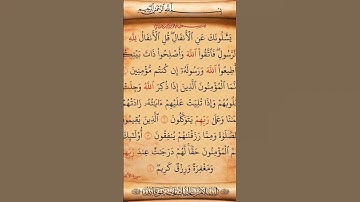 يَسْـَٔلُونَكَ عَنِ ٱلْأَنفَالِ قُلِ ٱلْأَنفَالُ لِلَّهِ
ٱلرَّسُولِ فَٱتَّقُوا۟ ٱللَّهَ وَأَصْلِحُوا۟ ذَاتَ بَيْنِكُمْ
أَطِيعُوا۟ ٱللَّهَ وَرَسُولَهُۥٓ إِن كُنتُم مُّؤْمِنِينَ ١
مَا ٱلْمُؤْمِنُونَ ٱلَّذِينَ إِذَا ذُكِرَ ٱللَّهُ
لُوبُهُمْ وَإِذَا تُلِيَتْ عَلَيْهِمْ ءَايَٰتُهُۥ زَادَتْهُمْ
نًا وَعَلَىٰ رَبِّهِمْ يَتَوَكَّلُونَ ٢ ٱلَّذِينَ يُقِيمُو
لصَّلَوٰةَ وَمِمَّا رَزَقْنَٰهُمْ يُنفِقُونَ ٣ أُو۟لَٰٓئِكَ
مُ ٱلْمُؤْمِنُونَ حَقًّا لَّهُمْ دَرَجَٰتٌ عِندَ رَبِّهِمْ
وَمَغْفِرَةٌ وَرِزْقٌ كَرِيمٌ ٤